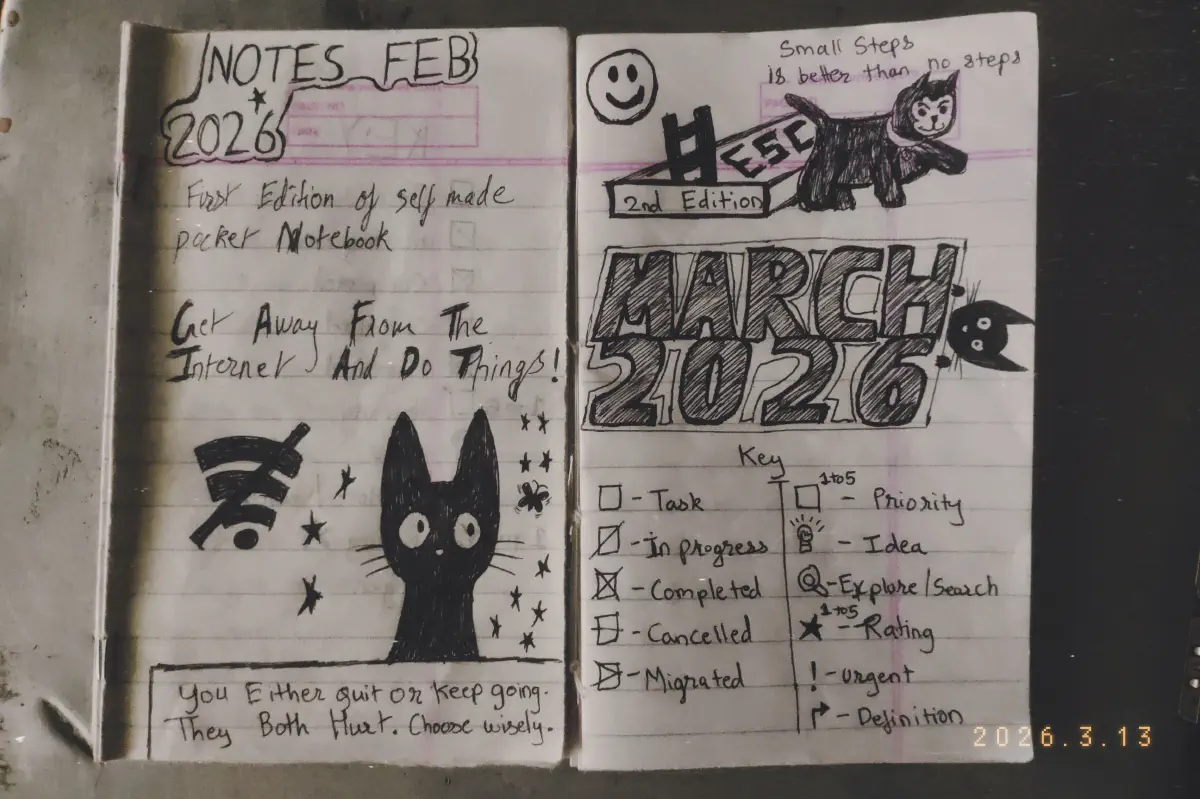 NOTES FEB
2026
First Edition of self made
pocket Notebook
Get Away From The
Internet And Do Things!
You Either quit or keep going.
They Both Hurt. Choose wisely.
Small Steps
is better than no steps
# ESC
2nd Edition
MARCH
2026
Key
- Task
- In progress
- Completed
- Cancelled
- Migrated
1to5 - Priority
- Idea
- Explore/Search
1to5 - Rating
! - urgent
- Definition
2026.3.13